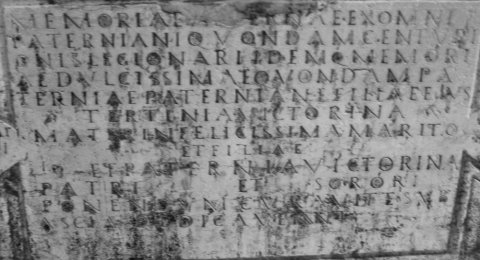 MEMORIAE EXOMNI
PATERNIANI QVONDAM CENTVRI
ONIS LEGIONARI IDEMQ MEMORI
AE DVLCISSIMAE QVONDAM PA
TERNIAE PATERNIANE FILIAE EIVS
TERTINIA VICTORINA
MATER INFELICISSIMA MARITO
ET FILIAE
ET PATERNIA VICTORINA
PATRI ET SORORI